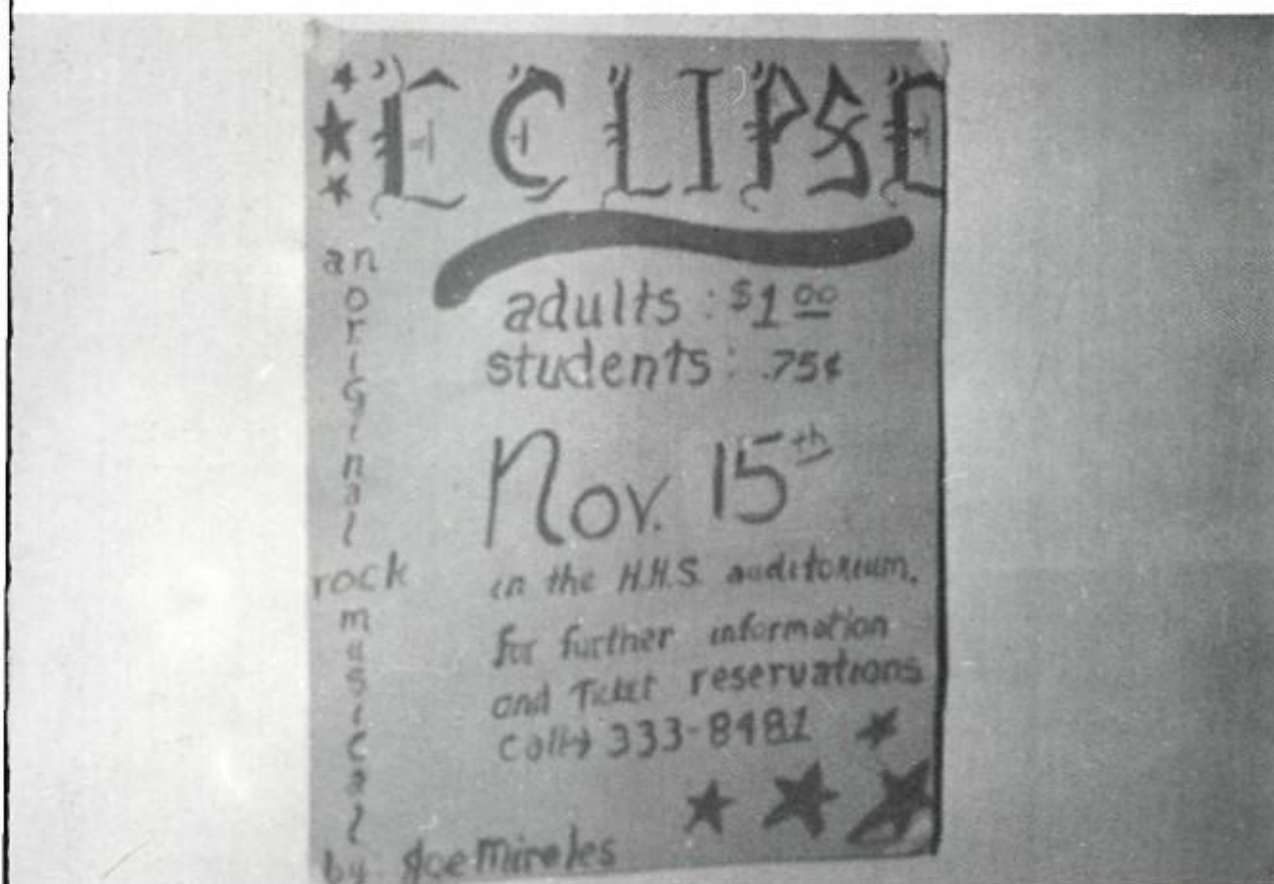 ECLIPSE
an
original
rock
musical
by Joe Mireles
adults : $1 00
students : .75¢
Nov. 15th
in the H.H.S. auditorium.
for further information
and Ticket reservations
call→ 333-8481